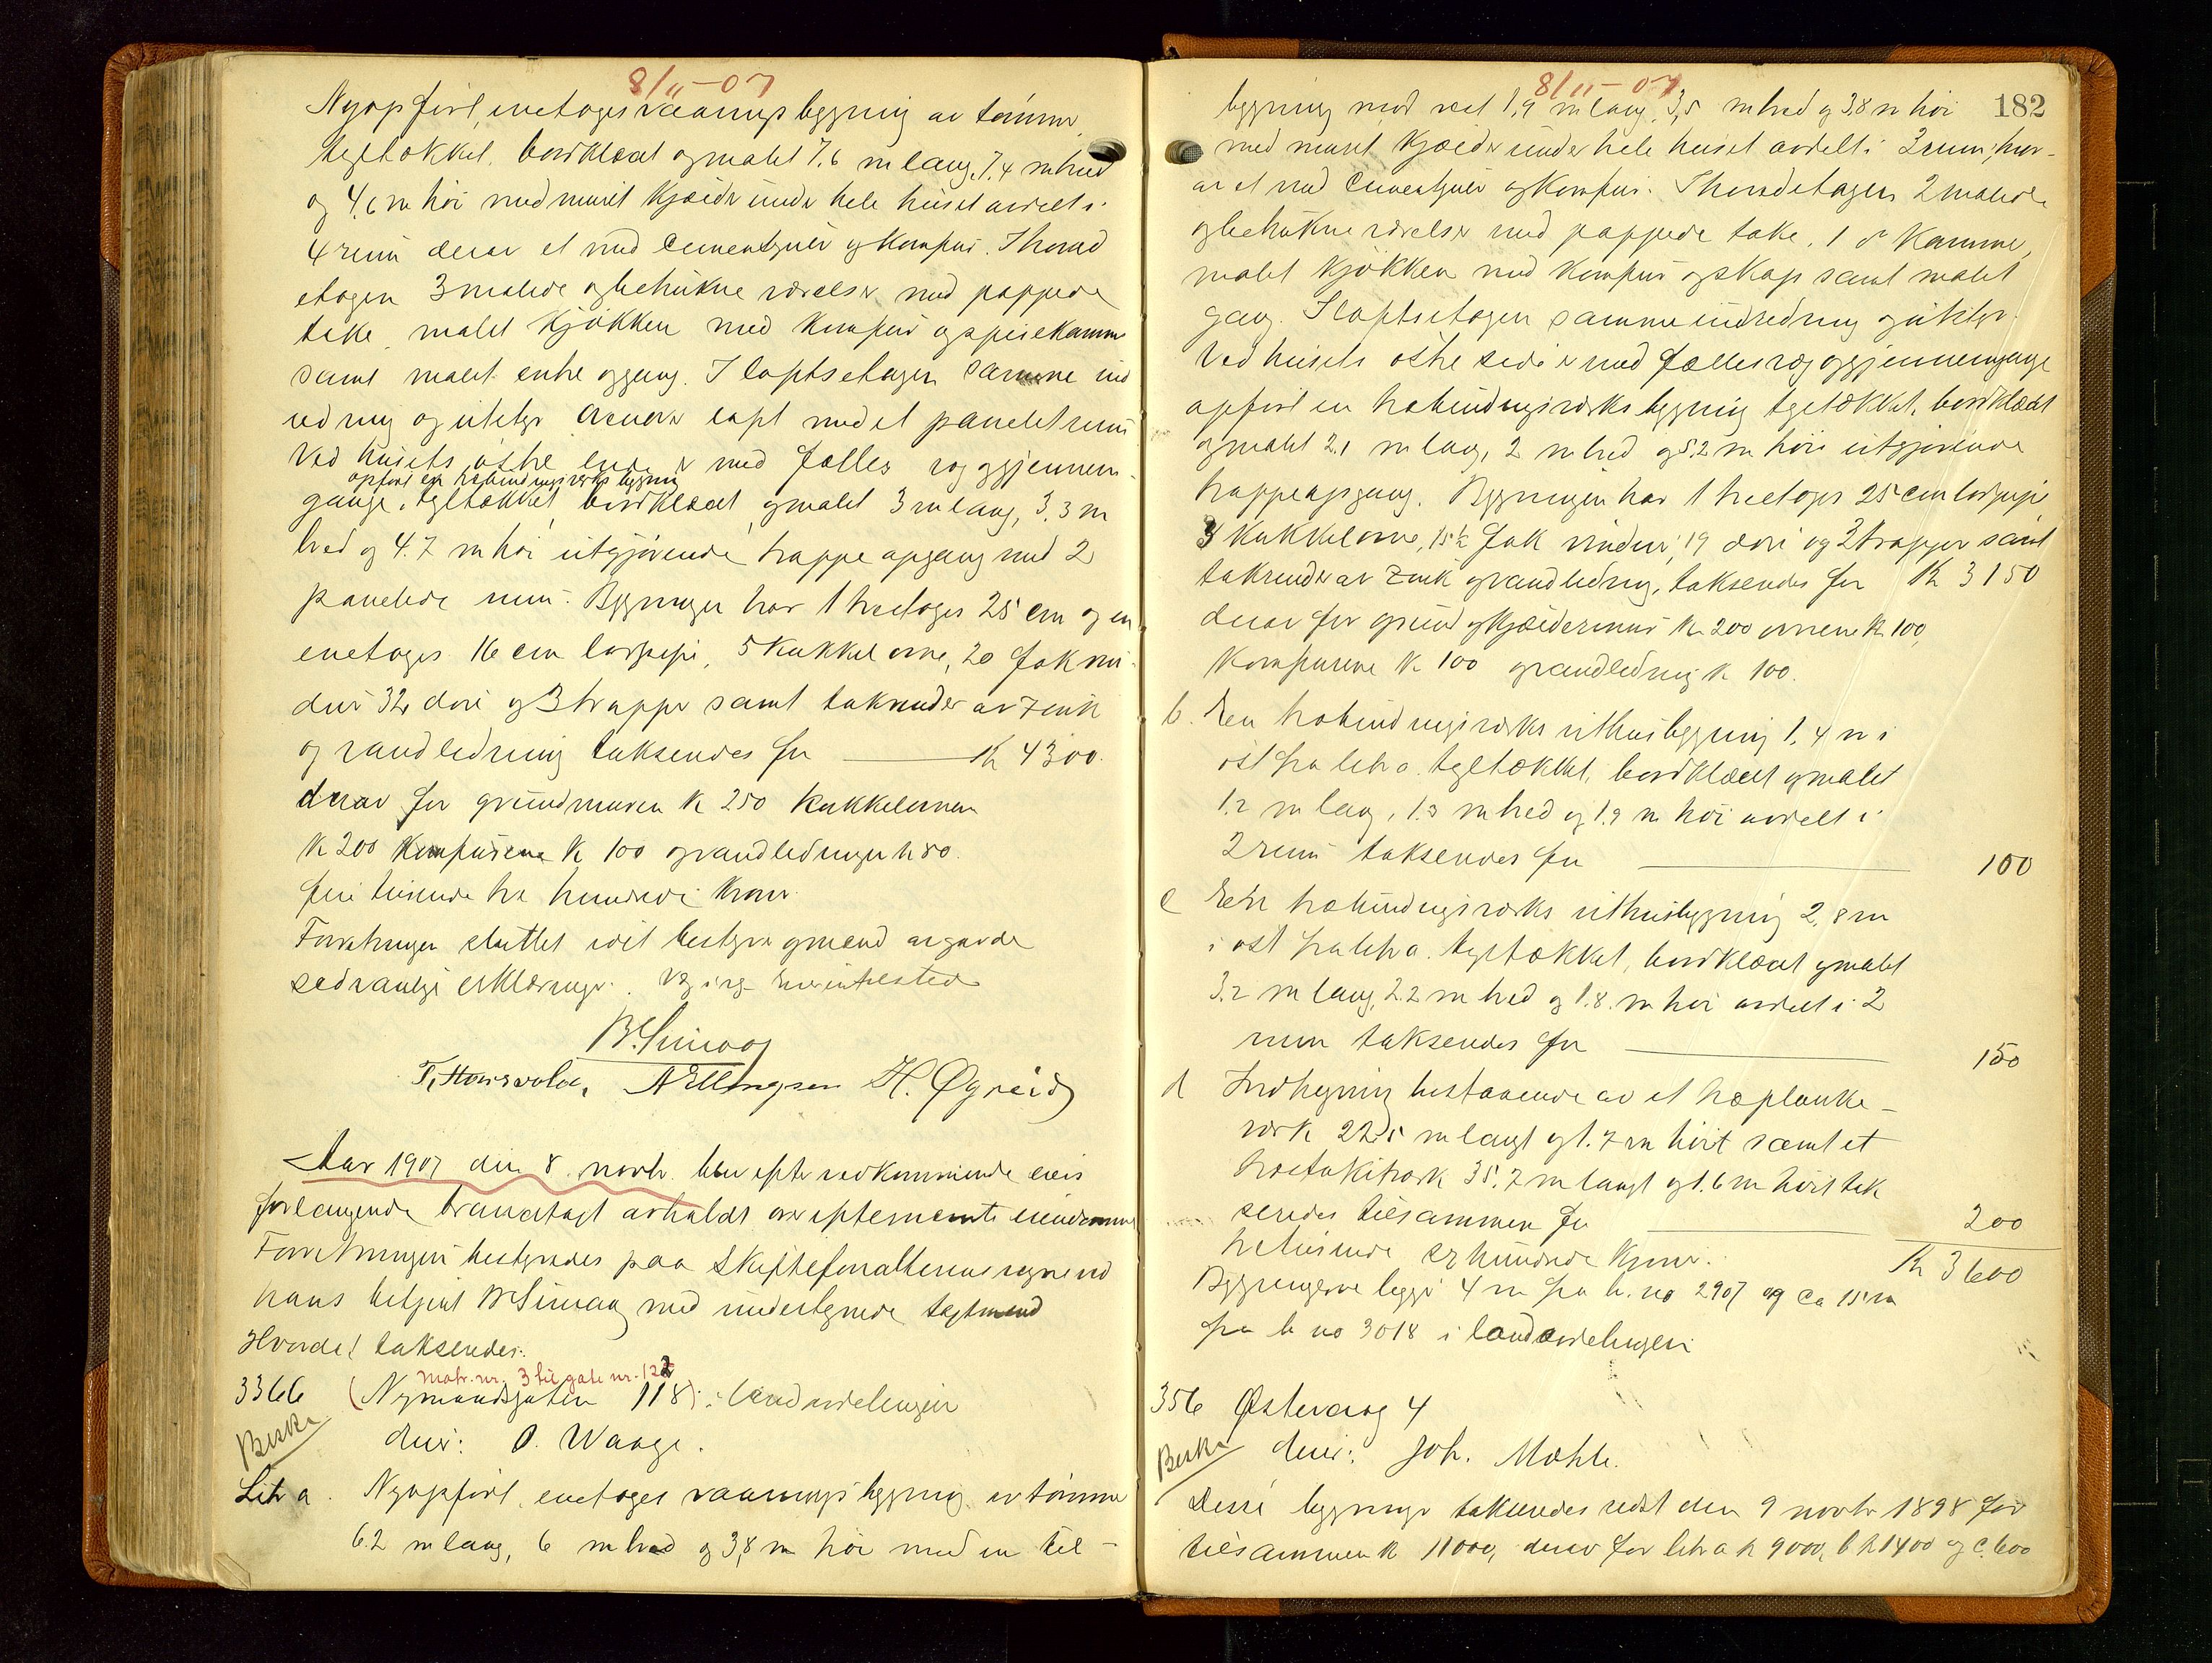 8/11-07
Nyopført, enetages vaaningsbygning av tømmer
tegltækket, bordklædt og malet 7.6 m lang, 7.4 m bred
og 4.6 m høi med muret kjælder under hele huset avdelt i
4 rum derav et med cementgulv og komfur. I hoved
etagen 3 malede og betrukne værelser med pappede
take, malet kjøkken med komfur og spisekammer
samt malet entre og gang. I loftsetagen samme ind
redning og utstyr derover loft med et panelet rum
Ved husets østre ende er med fælles væg og gjennem-
opført en træbindingsværks bygning
gange, tegltækket bordklædt og malet 3 m lang, 3.3 m
bred og 4.7 m høi utgjørende trappeopgang med 2
panelede rum. Bygningen har 1 treetages 25 cm og en
enetages 16 cm lovpipe, 5 kakkelovne, 20 fak vin-
duer 32 døre og 3 trapper samt takrender av zink
og vandledning taksendes for K 4300.
derav for grundmuren K 250 kakkelovnen
K 200 komfurene K 100 og vandledningen K 80.
fire tusinde tre hundrede kroner
Forretningen sluttet idet bestyrer og mænd avgavde
sedvanlige erklæringer.
B. Simoog
T. Hausvold, A Ellingsen H. Øgreid
Aar 1907 den 8. novbr. blev efter vedkommende eiers
forlangende branntaxt avholdt over efternevnte eiendomme
Forretningen bestyrdes paa Skifteforvalterens vegne ved
hans betjent B Simoog med undertegnede taxtmænd
Hvorved taksendes:
Matr. nr. 3 til gate nr. 122
3366 (Nymandsgaten 118) i landavdelingen
Besk.
eier: O. Waage.
Litr a. Nyopført, enetages vaaningsbygning av tømmer
6.2 m lang, 6 m bred og 3,8 m høi med en til-
8/11-07
182
bygning mod vest 1,9 m lang, 3,5 m bred og 3.8 m høi
med muret kjælder under hele huset avdelt i 3 rum, hvor-
av et med cementgulv og komfur. I hovedetagen 2 malede
og betrukne værelser med pappede take, 1 do kammer,
malet kjøkken med komfur og skap samt malet
gang. I loftsetagen samme indredning og utstyr.
Ved husets østre side er med fælles væg og gjennemgange
opført en træbindingsværks bygning tegltækket, bordklædt
og malet 2.1 m lang, 2 m bred og 5.2 m høi utgjørende
trappeopgang. Bygningen har 1 treetages 25 cm lovpipe,
3 kakkelovne, 15½ fak vinduer, 19 døre og 2 trapper samt
takrender av zink og vandledning, taksendes for K 3150
derav for grund og kjældermur K 200 ovnene K 100,
komfurene K 100 og vandledning K 100.
b. En træbindingsværks uthusbygning 1,4 m i
øst fra litra a. tegltækket, bordklædt og malet
1.2 m lang, 1.3 m bred og 1.9 m høi avdelt i
2 rum taksendes for 100
c En træbindingsværks uthusbygning 2,8 m
i øst fra litr a. tegltækket, bordklædt og malet
3.2 m lang, 2.2 m bred og 1.8 m høi avdelt i 2
rum taksendes for 150
d Indhegning bestaaende av et træplanke-
værk 22.5 m langt og 1.7 m høit samt et
træstakitværk 35.7 m langt og 1.6 m høit tak
seredes tilsammen for 200
tretusinde sekshundrede kroner. K 3600
Bygningerne ligger 4 m fra br. no 2907 og ca 15 m
fra br no 3018 i landavdelingen
356 Østervaag 4
Besk.
eier: Joh. Mæhle.
Disse bygninger takseredes sidst den 9 novbr 1898 for
tilsammen K 11000, derav for litr a K 9000, b K 1400 og c. 600